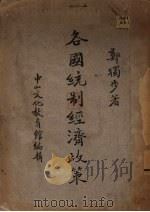 鄭獨步著
各國統制經濟政策
中山文化教育館編輯